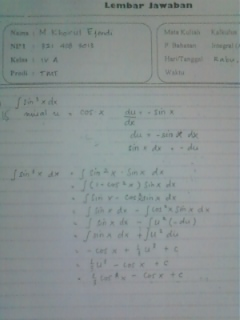 Lembar Jawaban
Nama : M Khoirul Efendi
Kelas : IV A
Prodi :
Mata Kuliah : Kalkulus
Hari/Tanggal : Rabu,
Waktu
1. ∫ sin³ x dx
misal u = cos x du/dx = - sin x
du = - sin x dx
sin x dx = - du
∫ sin³ x dx = ∫ sin² x · sin x dx
= ∫ (1 - cos² x) sin x dx
= ∫ sin x - cos² x sin x dx
= ∫ sin x dx - ∫ cos² x sin x dx
= ∫ sin x dx - ∫ u² (- du)
= ∫ sin x dx + ∫ u² du
= - cos x + 1/3 u³ + c
= 1/3 u³ - cos x + c
= 1/3 cos³ x - cos x + c